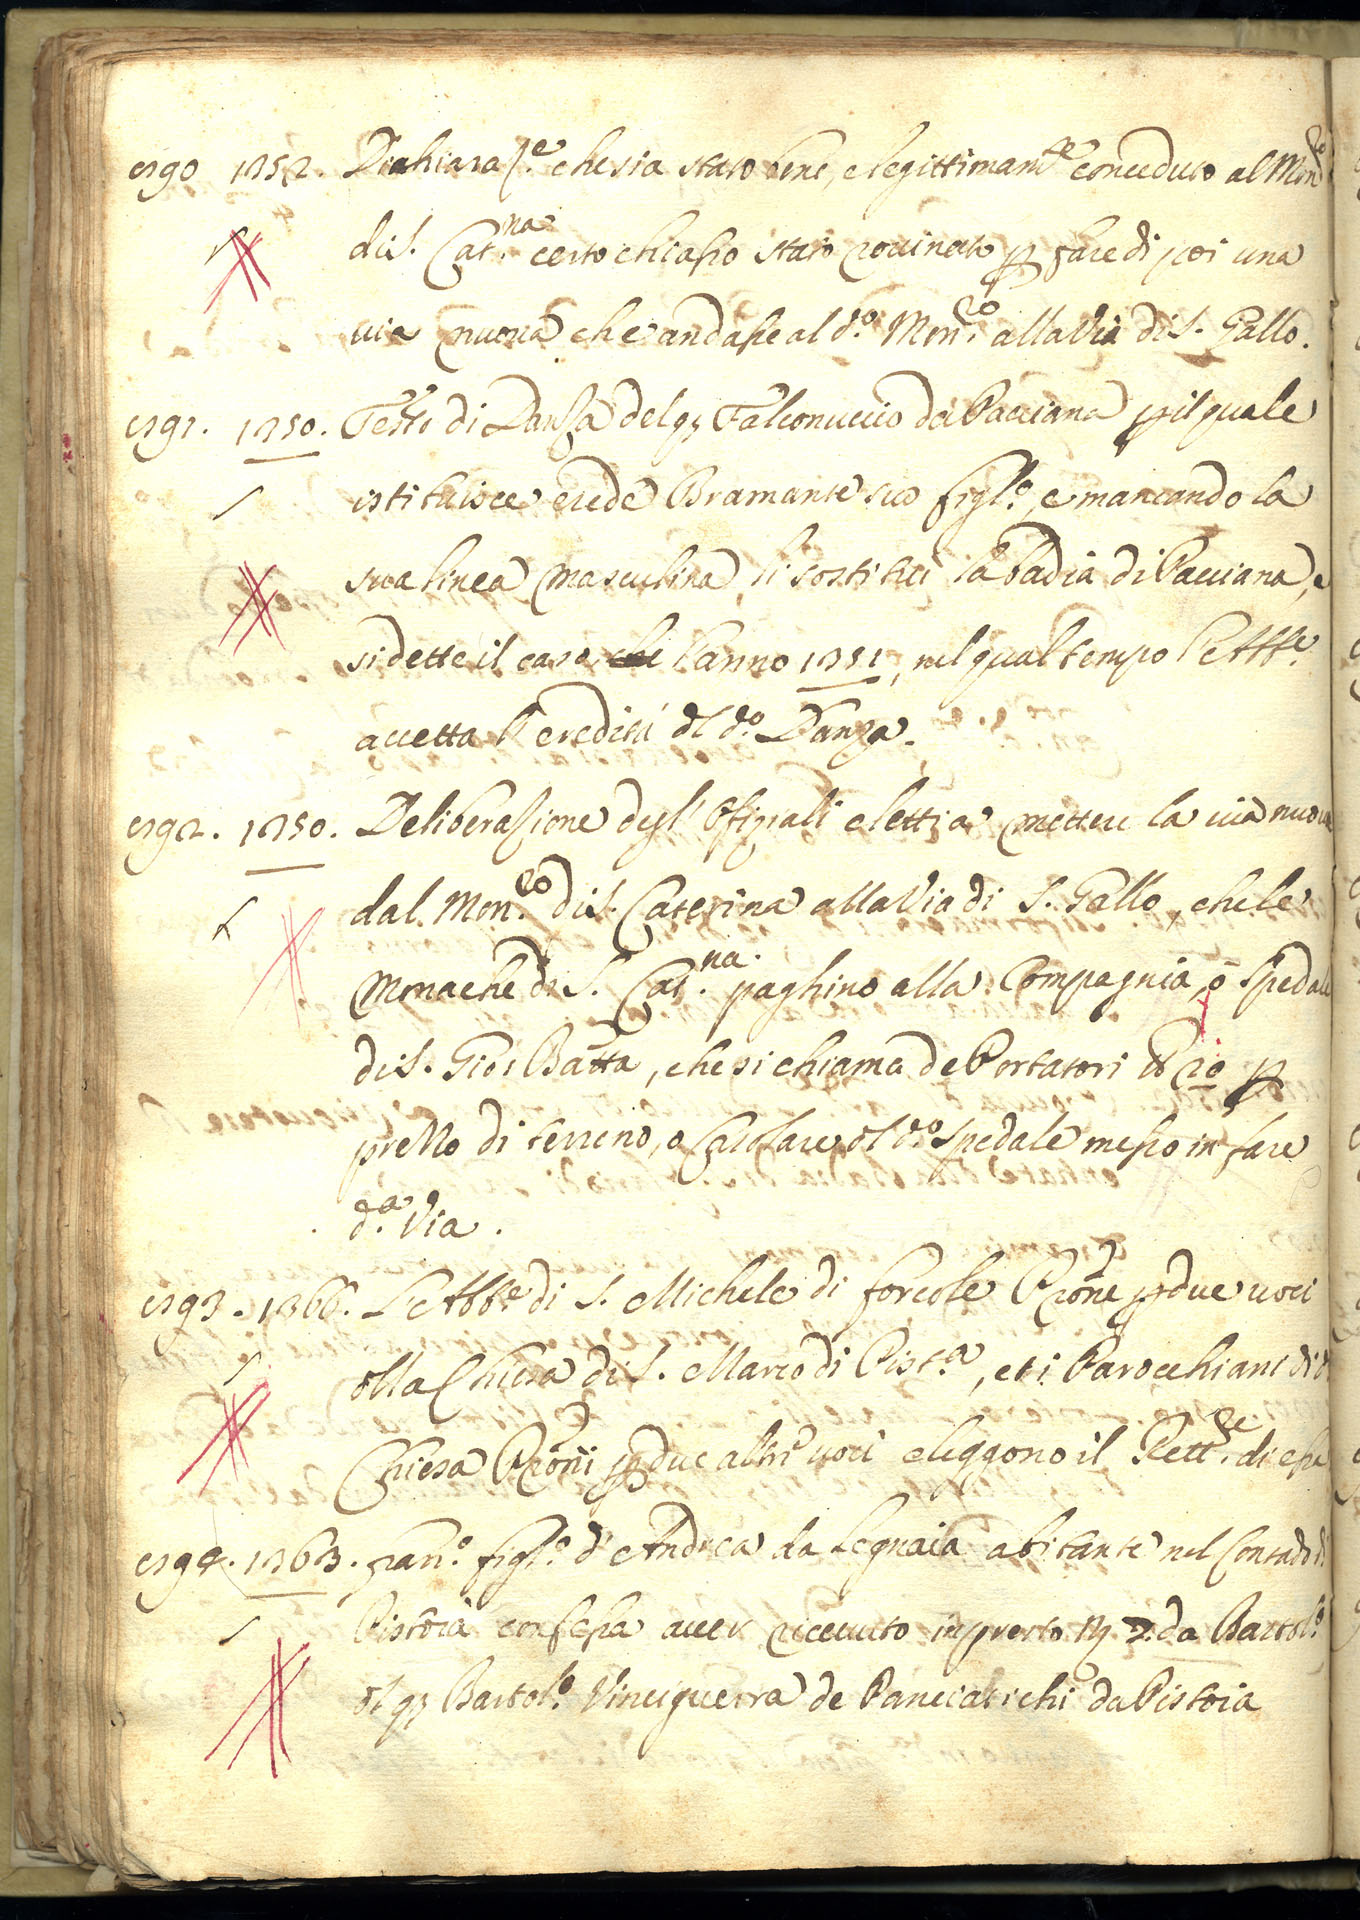 1390 1352. Dichiaraz.e che sia stato bene, e legittimam.te conceduto al Mon.ro
di S. Cat.na certo chiasso stato rovinato p fare di poi una
via nuova che andasse al d.o Mon.ro alla Via di S. Gallo.
1391. 1350. Testo di Danza del q Falconuccio da Pacciana p il quale
istituisce erede Bramante suo figl.o, e mancando la
sua linea masculina, li sostituì la badia di Pacciana, e
si dette il caso, che l'anno 1351, nel qual tempo l'Abbe.
accetta l'eredità dl d.o Danza.
1392. 1350. Deliberazione degl' Ofiziali eletti a mettere la via nuova
dal Mon.ro di S. Caterina alla Via di S. Gallo, che le
Monache di S. Cat.na paghino alla Compagnia, o Spedale
di S. Gio: Batta, che si chiama de Portatori 20 p
prezzo di terreno, o Casolare dl d.o Spedale messo in fare
d.a Via.
1393. 1366. L'Abbe di S. Michele di Forcole Prone p due voci
dlla Chiesa di S. Marco di Pist.a, et i Parocchiani di d.
Chiesa Proni p due altri voci eleggono il Rett.re di essa
1394. 1363. Fran.o figl.o d'Andrea da Legnaia abitante nel Contado di
Pistoia confessa aver ricevuto in presto da Bartol.o
dl q Bartol.o Vinciguerra de Panciatichi da Pistoia